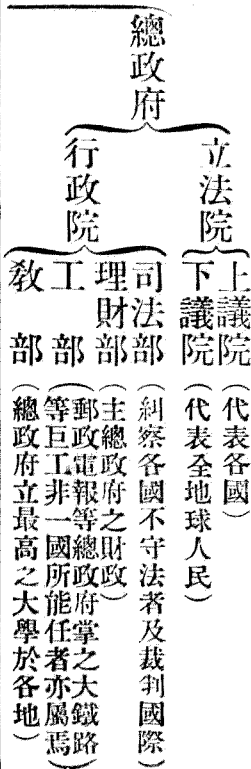 總政府
立法院
上議院（代表各國）
下議院（代表全地球人民）
行政院
司法部（糾察各國不守法者及裁判國際）
理財部（主總政府之財政）
工部（郵政電報等總政府掌之大鐵路
等巨工非一國所能任者亦屬焉）
敎部（總政府立最高之大學於各地）